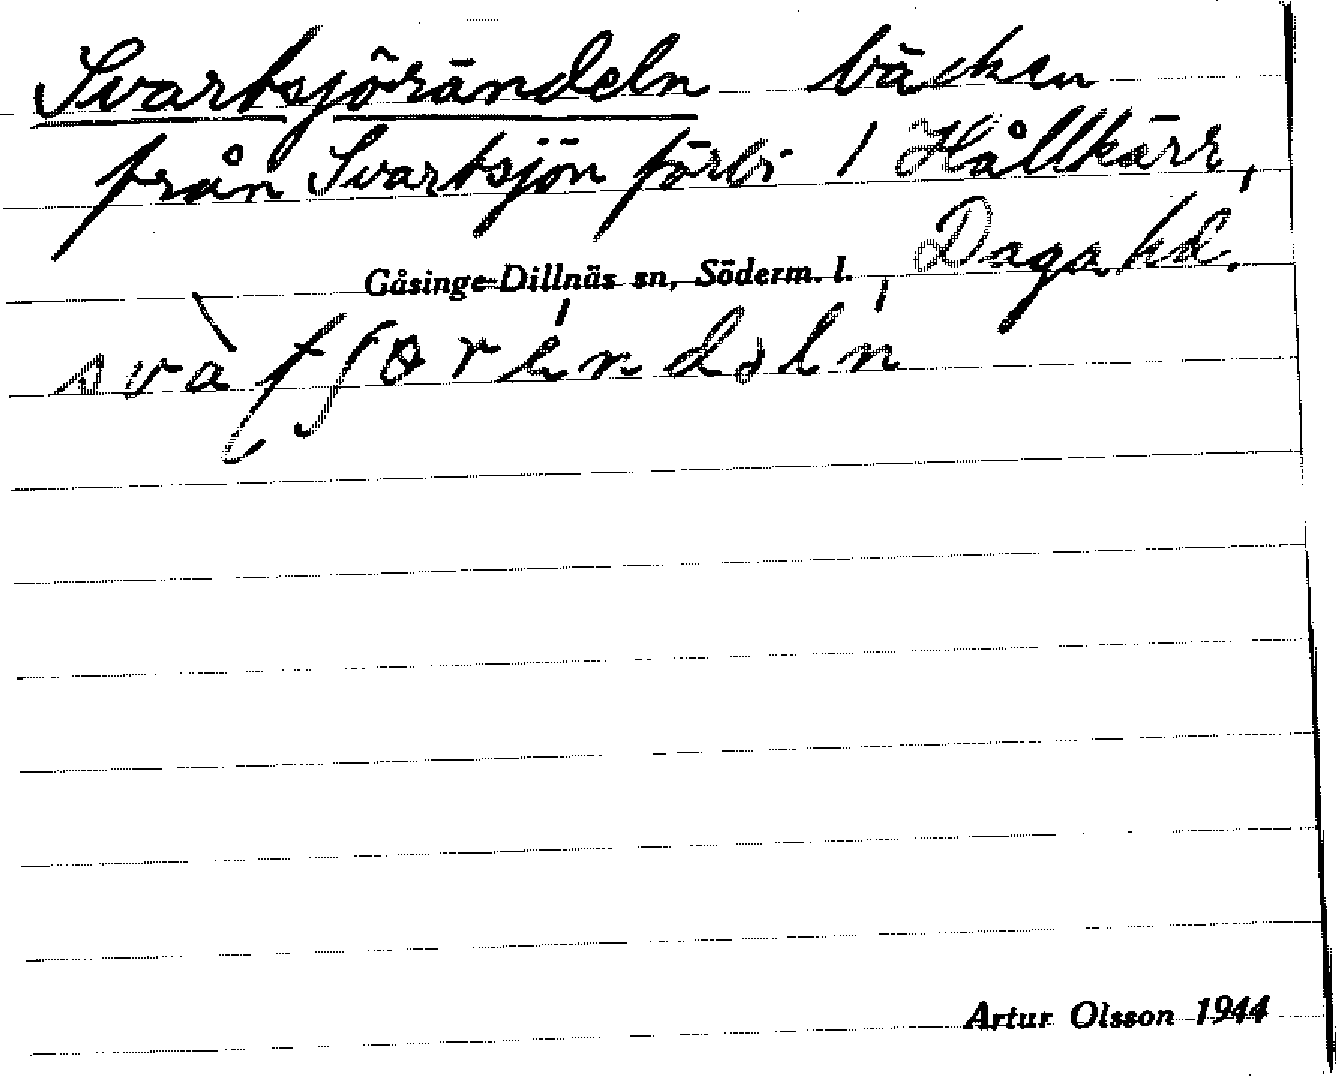 Svartsjörändeln bäcken
från Svartsjön förbi / Hållkärr,
Gåsinge-Dillnäs sn, Söderm. l., Daga hd.
Artur Olsson 1944